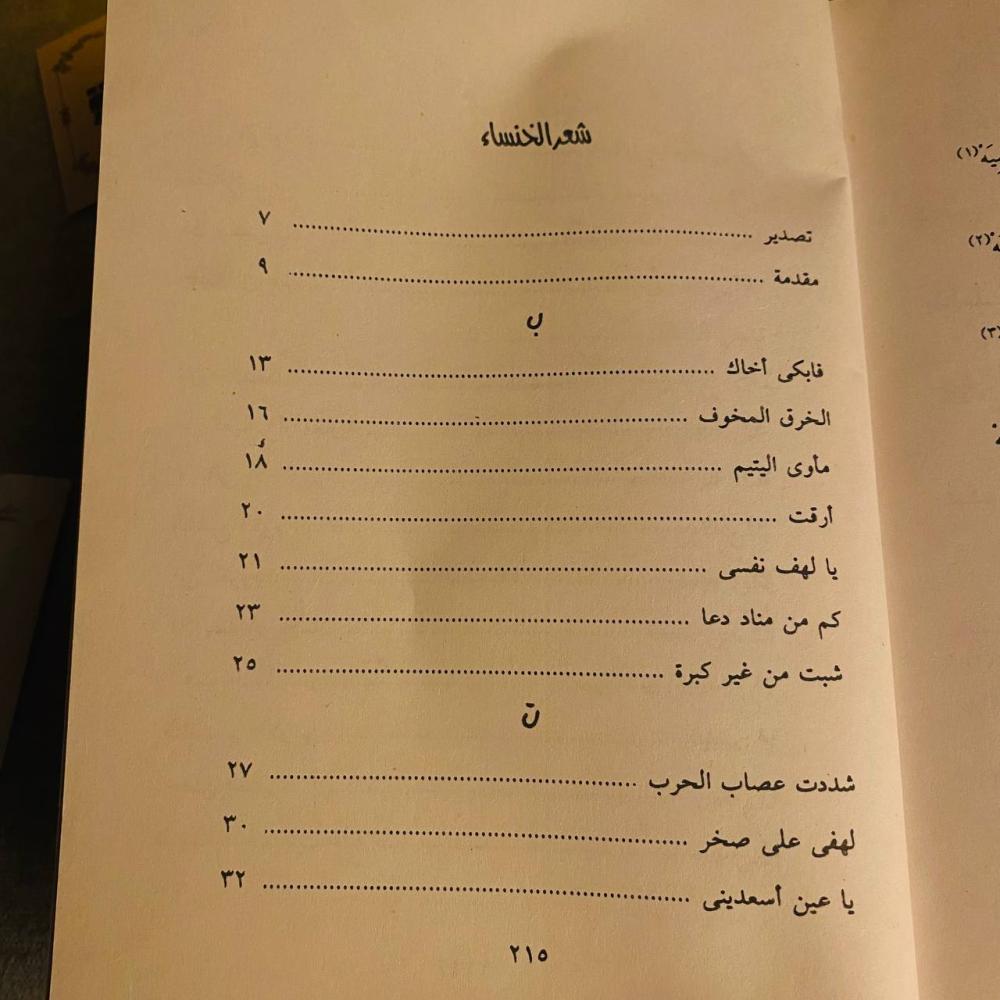 شعر الخنساء
تصدير ........ ٧
مقدمة ........ ٩
ب
فابكى أخاك ........ ١٣
الخرق المخوف ........ ١٦
مأوى اليتيم ........ ١٨
أرقت ........ ٢٠
يا لهف نفسى ........ ٢١
كم من مناد دعا ........ ٢٣
شبت من غير كبرة ........ ٢٥
ت
شددت عصاب الحرب ........ ٢٧
لهفى على صخر ........ ٣٠
يا عين أسعدينى ........ ٣٢
٢١٥
(١)
(٢)
(٣)